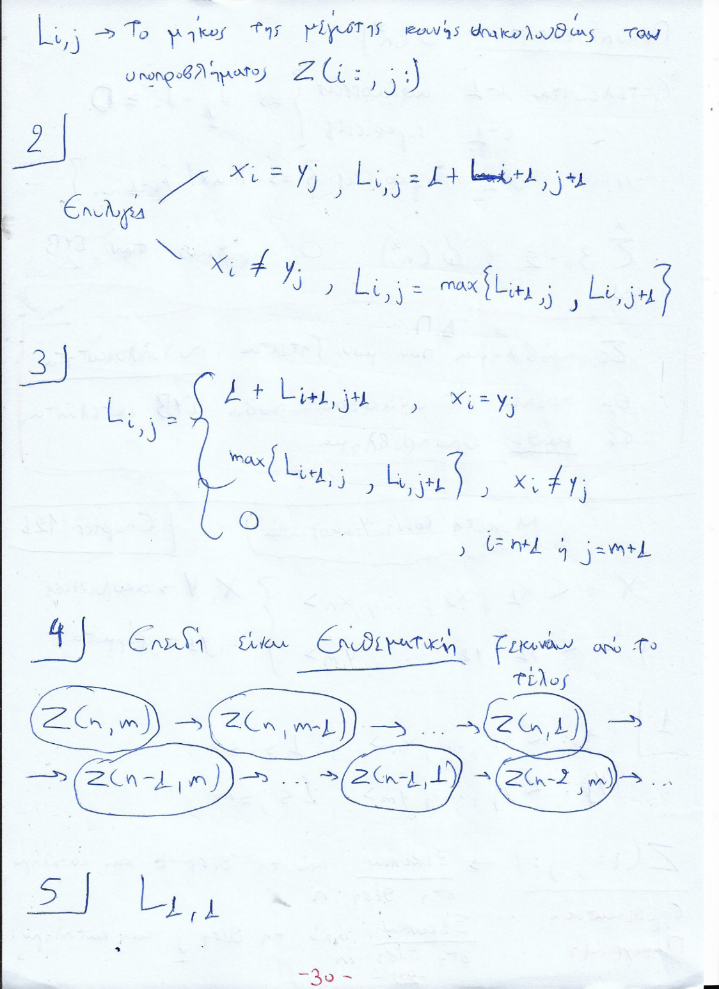 Li,j → Το μήκος της μέγιστης κοινής υπακολουθίας του
υποπροβλήματος Z(i:, j:)
2
xi = yj , Li,j = 1 + Li+1, j+1
Επιλογές
xi ≠ yj , Li,j = max{Li+1,j , Li,j+1}
3
Li,j = { 1 + Li+1,j+1 , xi = yj
max{Li+1,j , Li,j+1} , xi ≠ yj
0 , i=n+1 ή j=m+1
4 Επειδή είναι Επιθεματική ξεκινάω από το
τέλος
Z(n,m) → Z(n,m-1) → ... → Z(n,1) →
→ Z(n-1,m) → ... → Z(n-1,1) → Z(n-2,m) → ...
5 L1,1
-30-